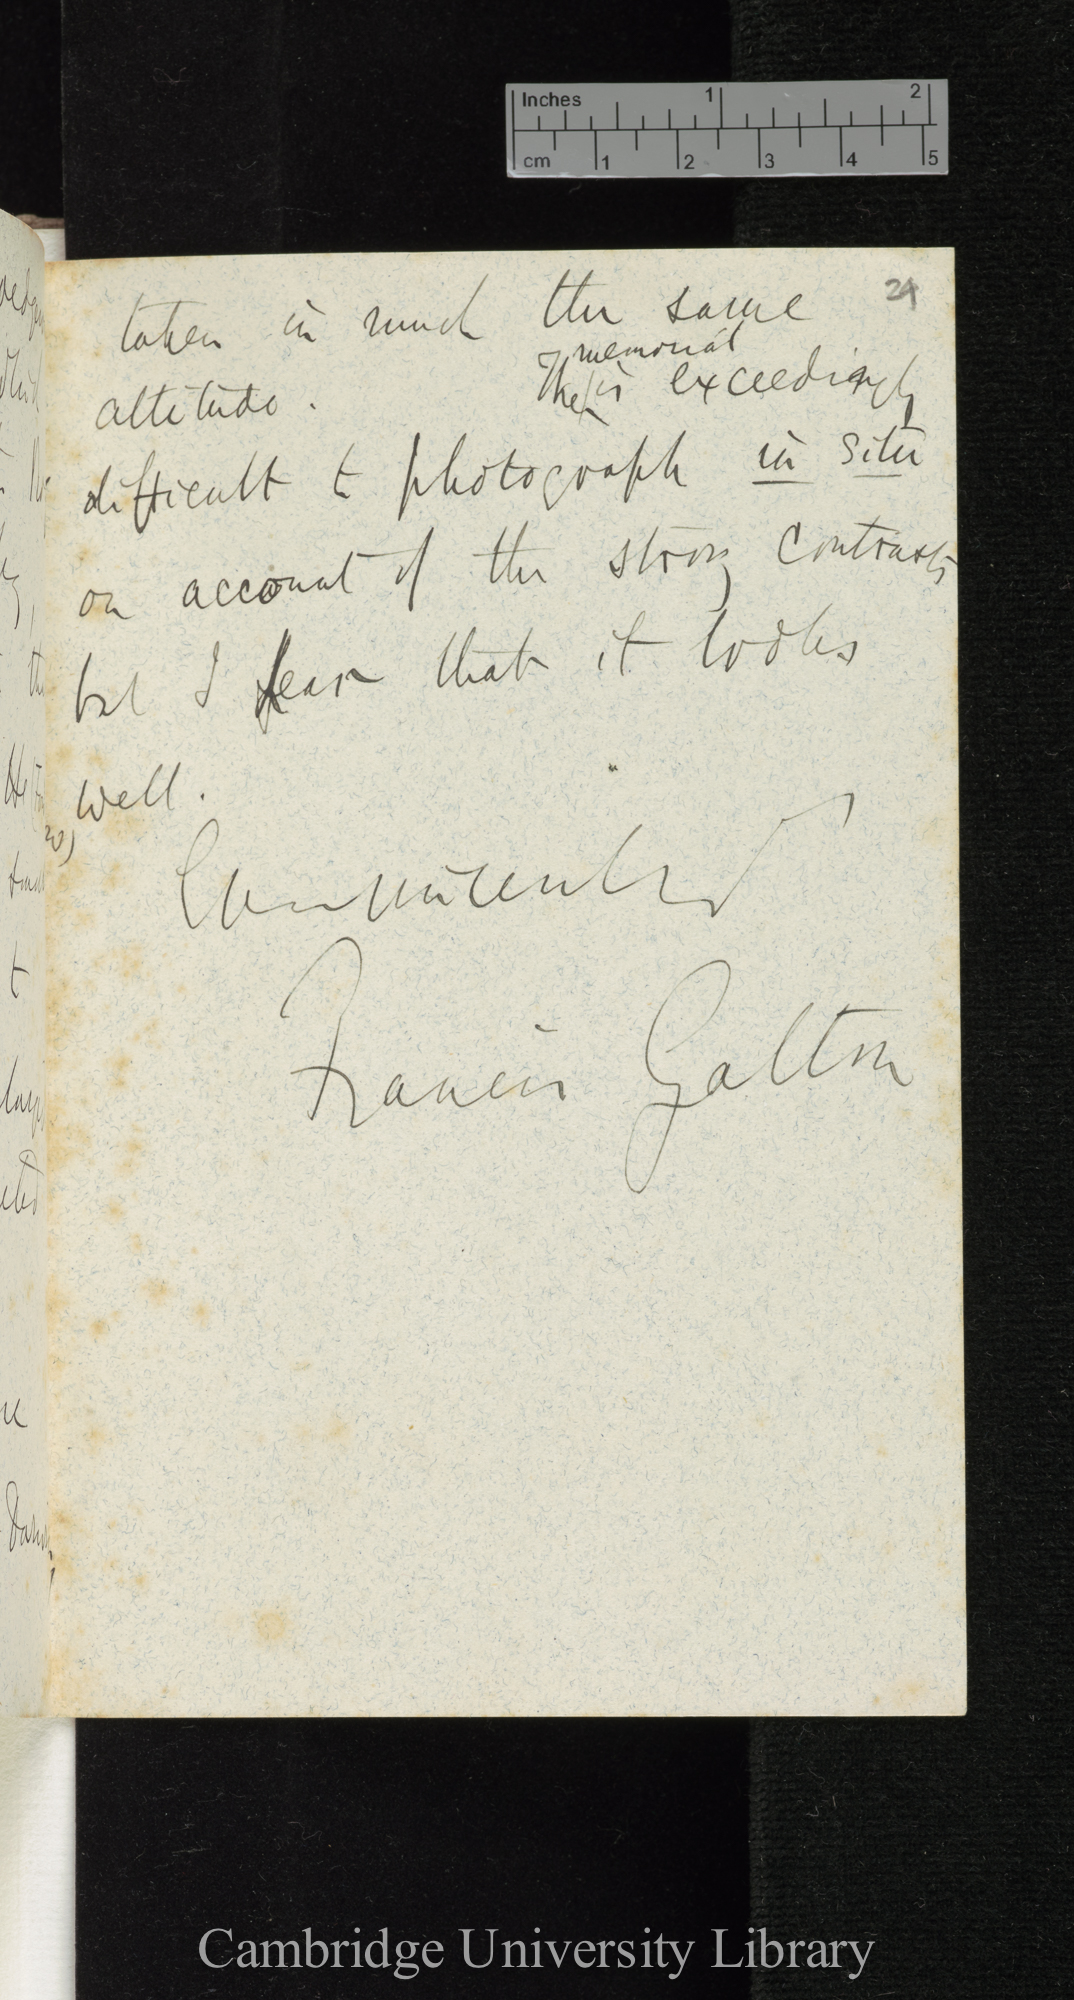 Inches 1 2
cm 1 2 3 4 5
29
taken in much the same
memorial
altitude. The is exceedingly
difficult to photograph in situ
on account of the strong contrasts,
but I fear that it looks
well.
Francis Galton
Cambridge University Library